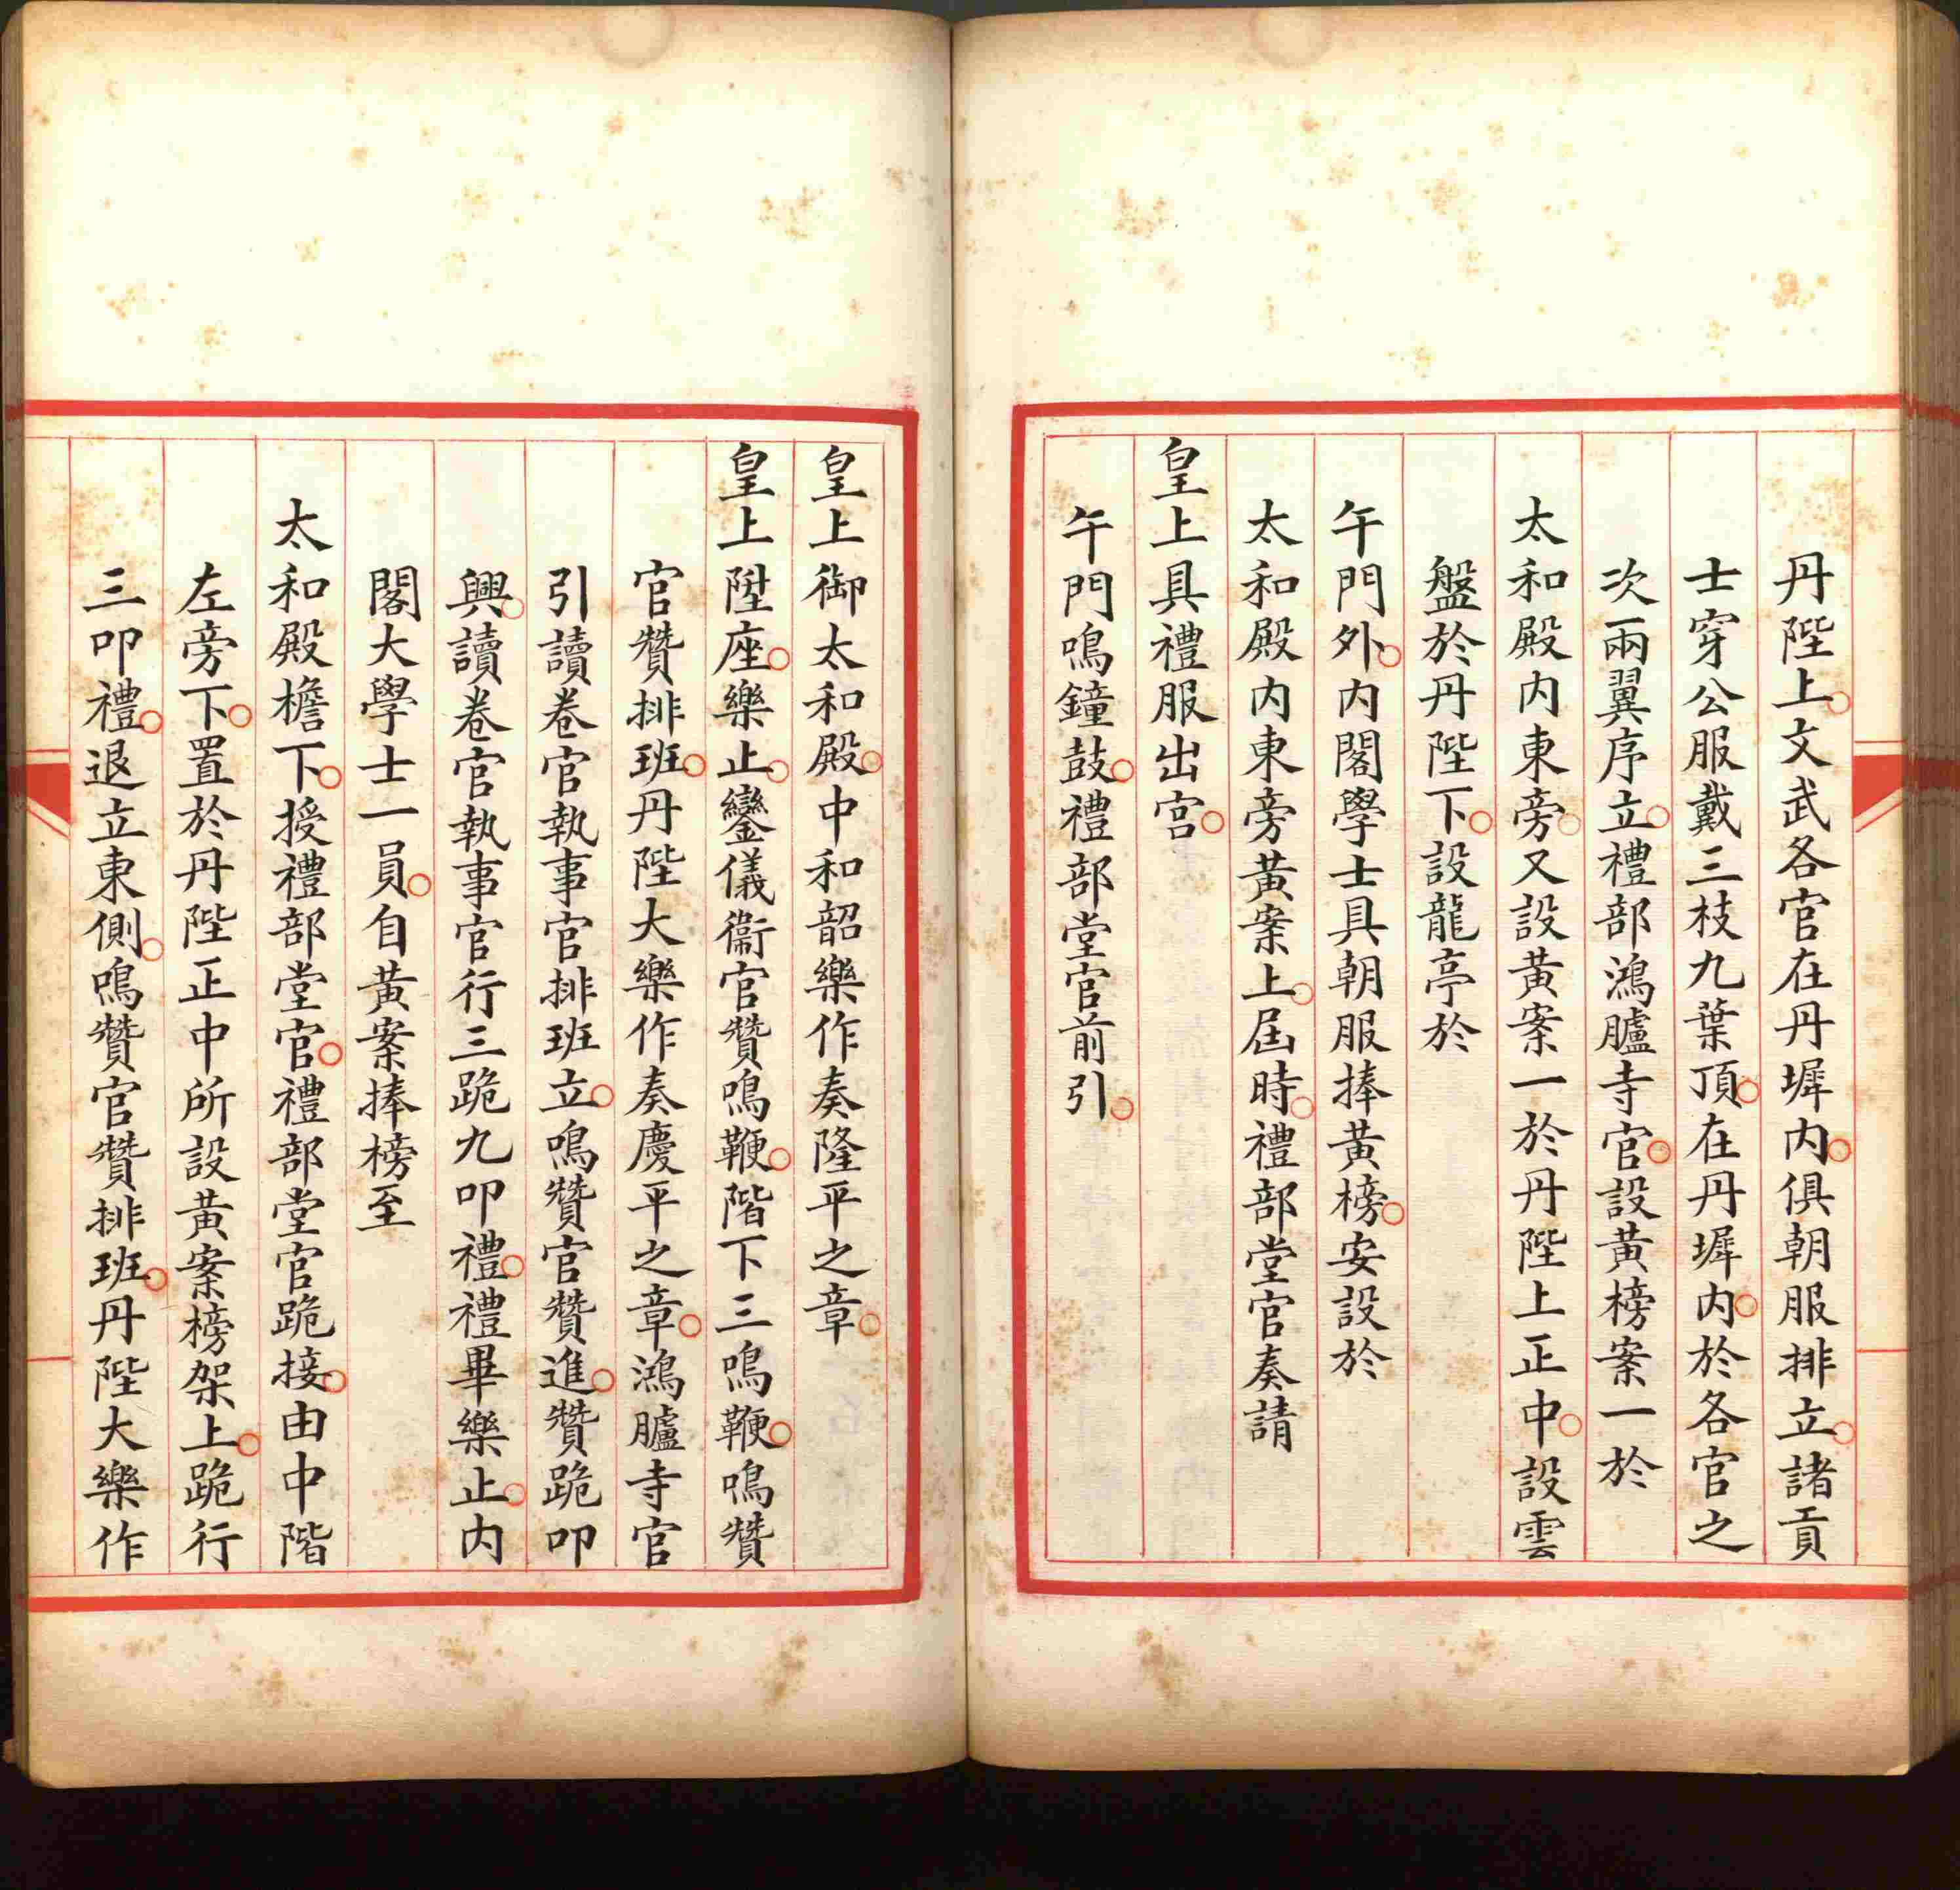 丹陛上文武各官在丹墀内俱朝服排立諸貢
士穿公服戴三枝九葉頂在丹墀内於各官之
次兩翼序立禮部鴻臚寺官設黃榜案一於
太和殿内東旁又設黃案一於丹陛上正中設雲
盤於丹陛下設龍亭於
午門外内閣學士具朝服捧黃榜安設於
太和殿内東旁黃案上屆時禮部堂官奏請
皇上具禮服出宮
午門鳴鐘鼓禮部堂官前引
皇上御太和殿中和韶樂作奏隆平之章
皇上陞座樂止鑾儀衞官贊鳴鞭階下三鳴鞭鳴贊
官贊排班丹陛大樂作奏慶平之章鴻臚寺官
引讀卷官執事官排班立鳴贊官贊進贊跪叩
興讀卷官執事官行三跪九叩禮禮畢樂止内
閣大學士一員自黃案捧榜至
太和殿檐下授禮部堂官禮部堂官跪接由中階
左旁下置於丹陛正中所設黃案榜架上跪行
三叩禮退立東側鳴贊官贊排班丹陛大樂作